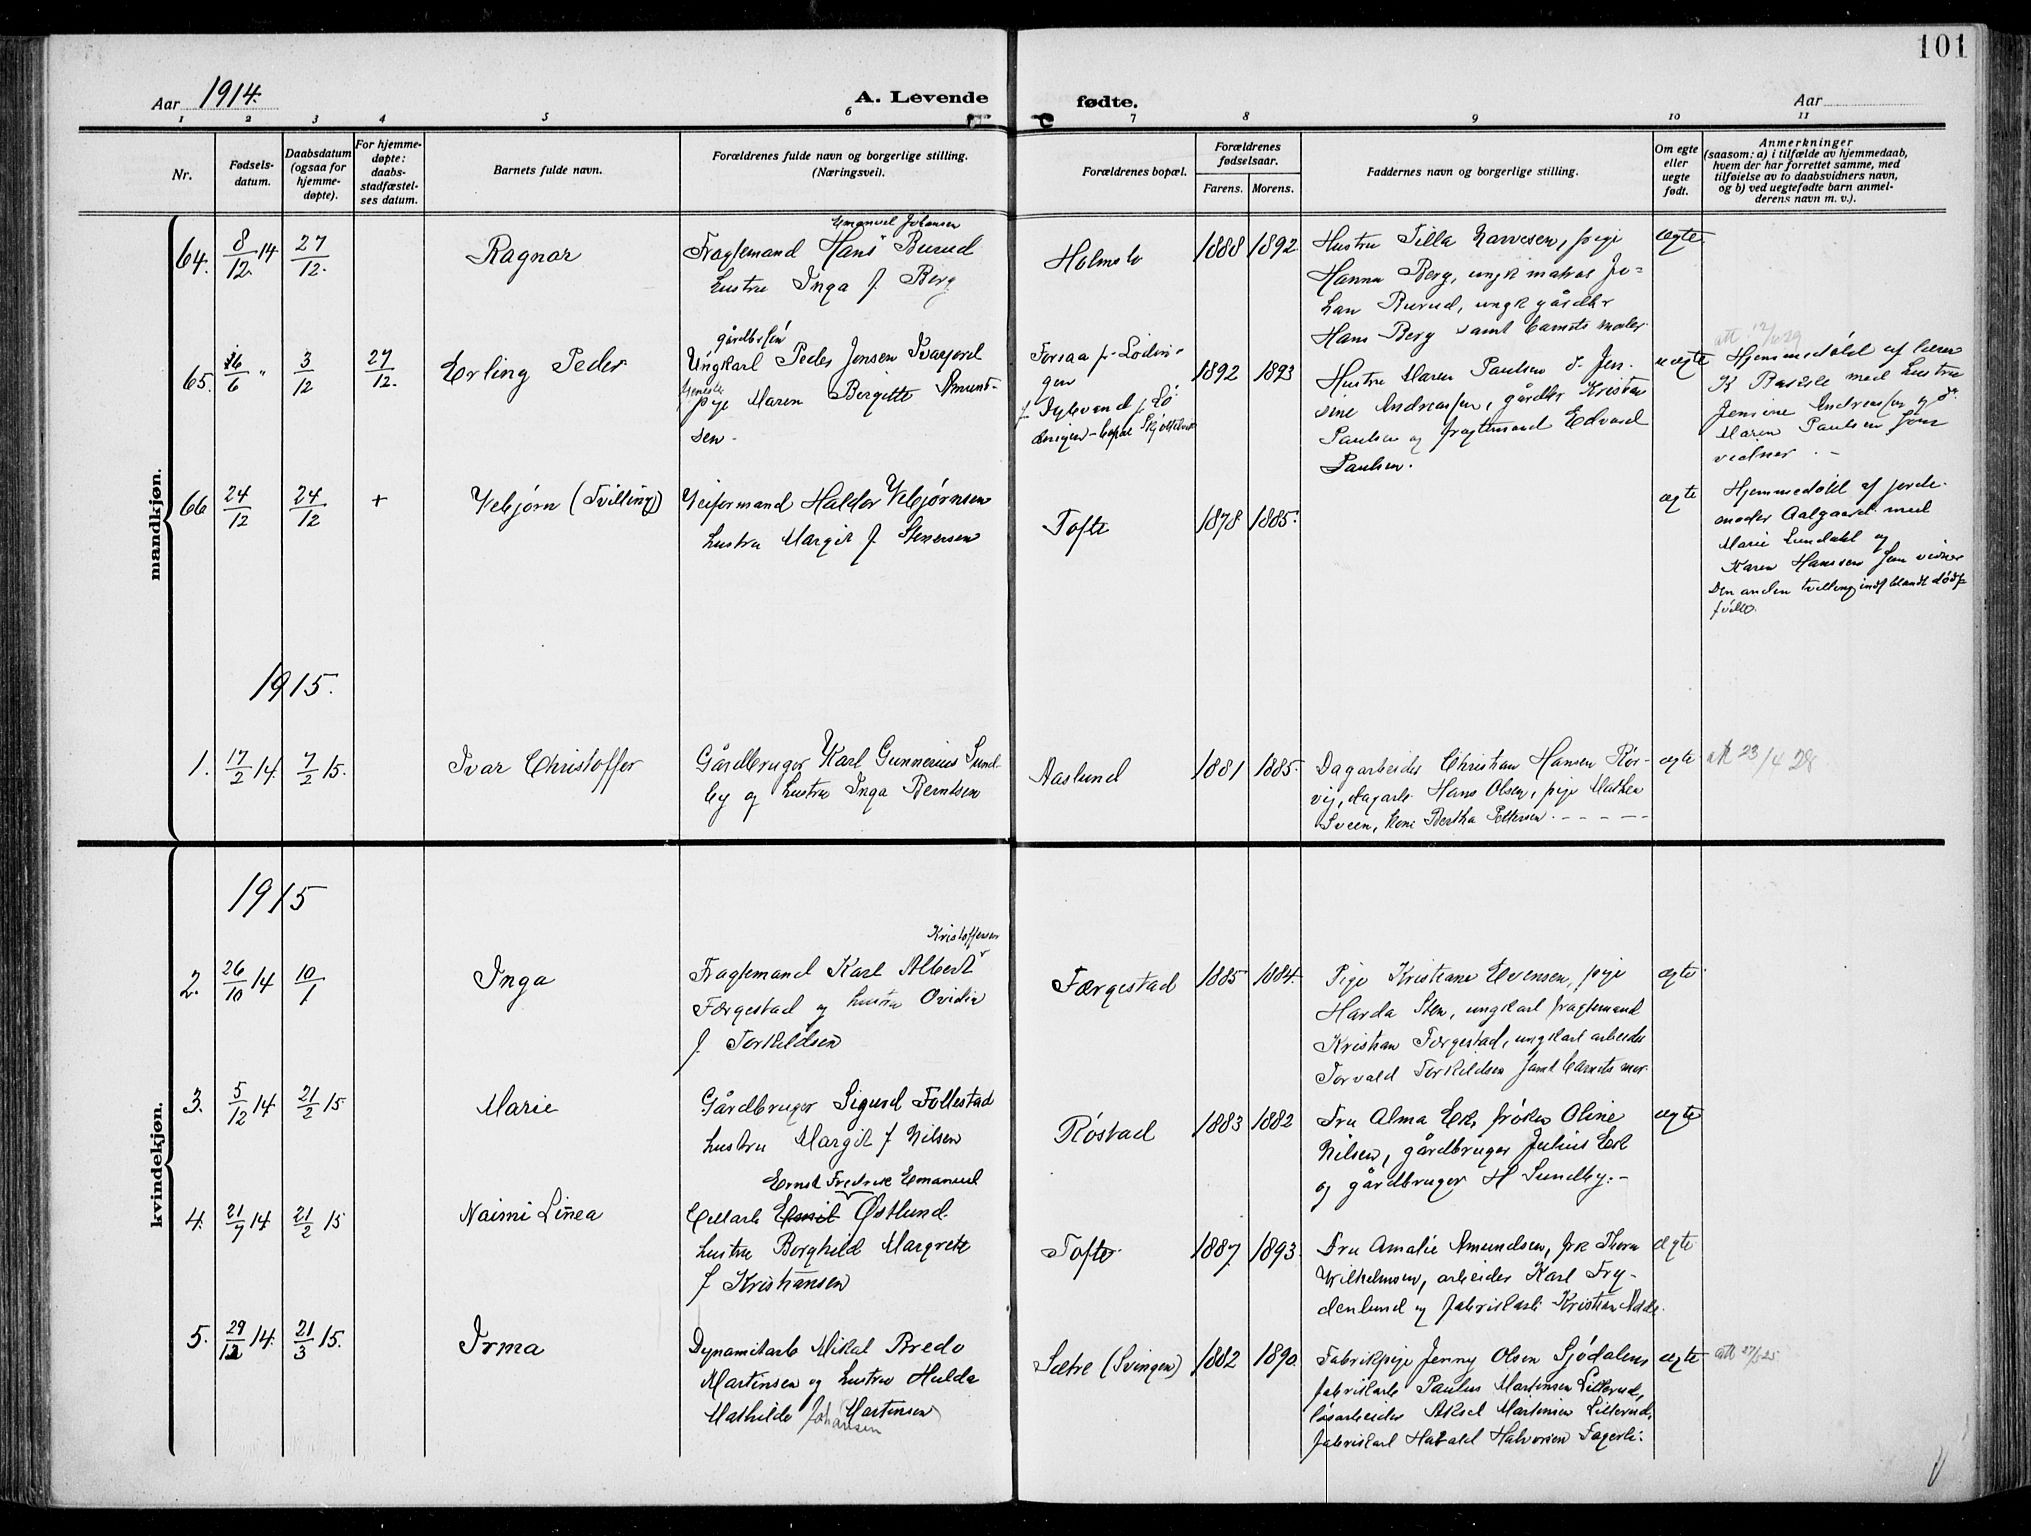 101
Aar 1914.
A. Levende fødte.
Aar
1 2 3 4 5 6 7 8 9 10 11
Nr.
Fødsels-
datum.
Daabsdatum
(ogsaa for
hjemme-
døpte).
For hjemme-
døpte:
daabs-
stadfæstel-
ses datum.
Barnets fulde navn.
Forældrenes fulde navn og borgerlige stilling.
(Næringsvei).
Forældrenes bopæl.
Forældrenes
fødselsaar.
Farens. Morens.
Faddernes navn og borgerlige stilling.
Om egte
eller
uegte
født.
Anmerkninger
(saasom: a) i tilfælde av hjemmedaab,
hvem der har forrettet samme, med
tilføielse av to daabsvidners navn,
og b) ved uegtefødte barn anmel-
derens navn m. v.).
mandkjøn.
64. 8/12 14 27/12.
Ragnar
Emanuel Johansen
Fragtemand Hans Burud
hustru Inga f. Berg
Holmsbo
1888 1892
Hustru Tilla Narvesen, pige
Hanna Berg, ungk matros Jo-
han Burud, ungk gårdbr
Hans Berg samt barnets moder
ægte
65. 16/6 " 3/12 27/12.
Erling Peder
gårdbrsøn
Ungkarl Peder Jensen Svarjord
tjeneste
pige Maren Bergitte Amund-
sen.
Forsaa pr Lødin-
gen
1892 1893
Hustru Maren Paulsen d. Jen-
sine Andreassen, gårdbr Kristian
Paulsen og fragtemand Edvard
Paulsen.
uegte
att. 12/6 29
Hjemmedøbt af lærer
K med hustru
Jensine Andreassen og d.
Maren Paulsen som
vidner
66 24/12 24/12 +
Vebjørn (Tvilling)
Veiformand Haldor Vebjørnsen
hustru Margit f. Stenersen
Tofte
1878. 1885.
ægte
Hjemmedøbt af jorde-
moder Aalgaard med
Marie Lundahl og
Karen Hanssen som vidner
Den anden tvilling indf blandt dødf
fødte.
1915.
1. 17/2 14. 7/2 15.
Ivar Christoffer
Gårdbruger Karl Gunnerius Sund-
by og hustru Inga Berntsen
Aaslund
1881 1885.
Dagarbeider Christian Hansen Rør-
vig, dagarb. Hans Olsen, pige Mathea
Sveen, kone Bertha Pettersen.
ægte
att 23/4 28
kvindekjøn.
1915
2. 26/10 14 10/1
Inga
Kristoffersen
Fragtemand Karl Albert
Færgestad og hustru Ovidia
f. Torkildsen
Færgestad
1885 1884.
Pige Kristiane Evensen, pige
Harda Sten, ungkarl fragtemand
Kristian Færgestad, ungkarl arbeider
Torvald Torkildsen samt barnets mor.
ægte
3. 5/12 14 21/2 15
Marie
Gårdbruger Sigurd Follestad
hustru Margit f Nilsen
Røstad
1883 1882
Fru Alma Ek, frøken Oline
Nilsen, gårdbruger Julius Ek
og gårdbruger H Sundby.-
ægte
4. 21/9 14 21/2 15
Naimi Linea
Ernst Fredrik Emanuel
Cellarb Emil Østlund.
hustru Borghild Margrete
f Kristiansen
Tofte
1887. 1893.
Fru Amalie Amundsen, frk Thora
Wilhelmsen, arbeider Karl Fry-
denlund og fabrikarb. Kristian
ægte
5. 29/12 14. 21/3 15.
Irma
Dynamitarb Mikal Bredo
Martinsen og hustru Hulda
Mathilde (Martinsen)
Johansen
Sætre (Svingen)
1882 1890.
Fabrikpige Jenny Olsen Sjødalens
fabrikarb Paulus Martinsen Lillerud,
løsarbeider Aksel Martinsen Lillerud,
fabrikarb Harald Halvorsen Fagerli.
ægte
att 27/5 25